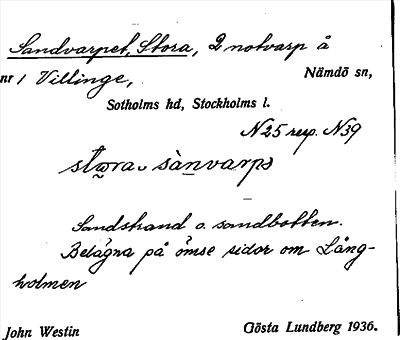 Sandvarpet, Stora, 2 notvarp å
nr 1 Villinge, Nämdö sn,
Sotholms hd, Stockholms l.
N25 resp. N39
stω̰ra˗ sànvarpə
Sandstrand o. sandbotten.
Belägna på ömse sidor om Lång-
holmen
John Westin Gösta Lundberg 1936.